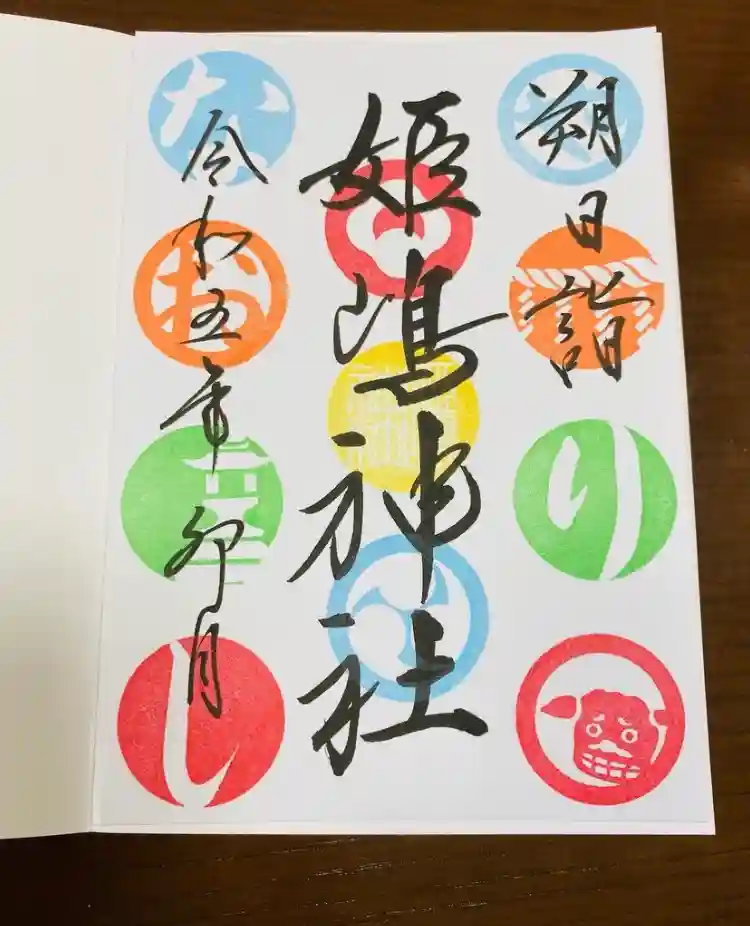 朔日詣
り
姫嶋神社
令和五年卯月
な
お
し